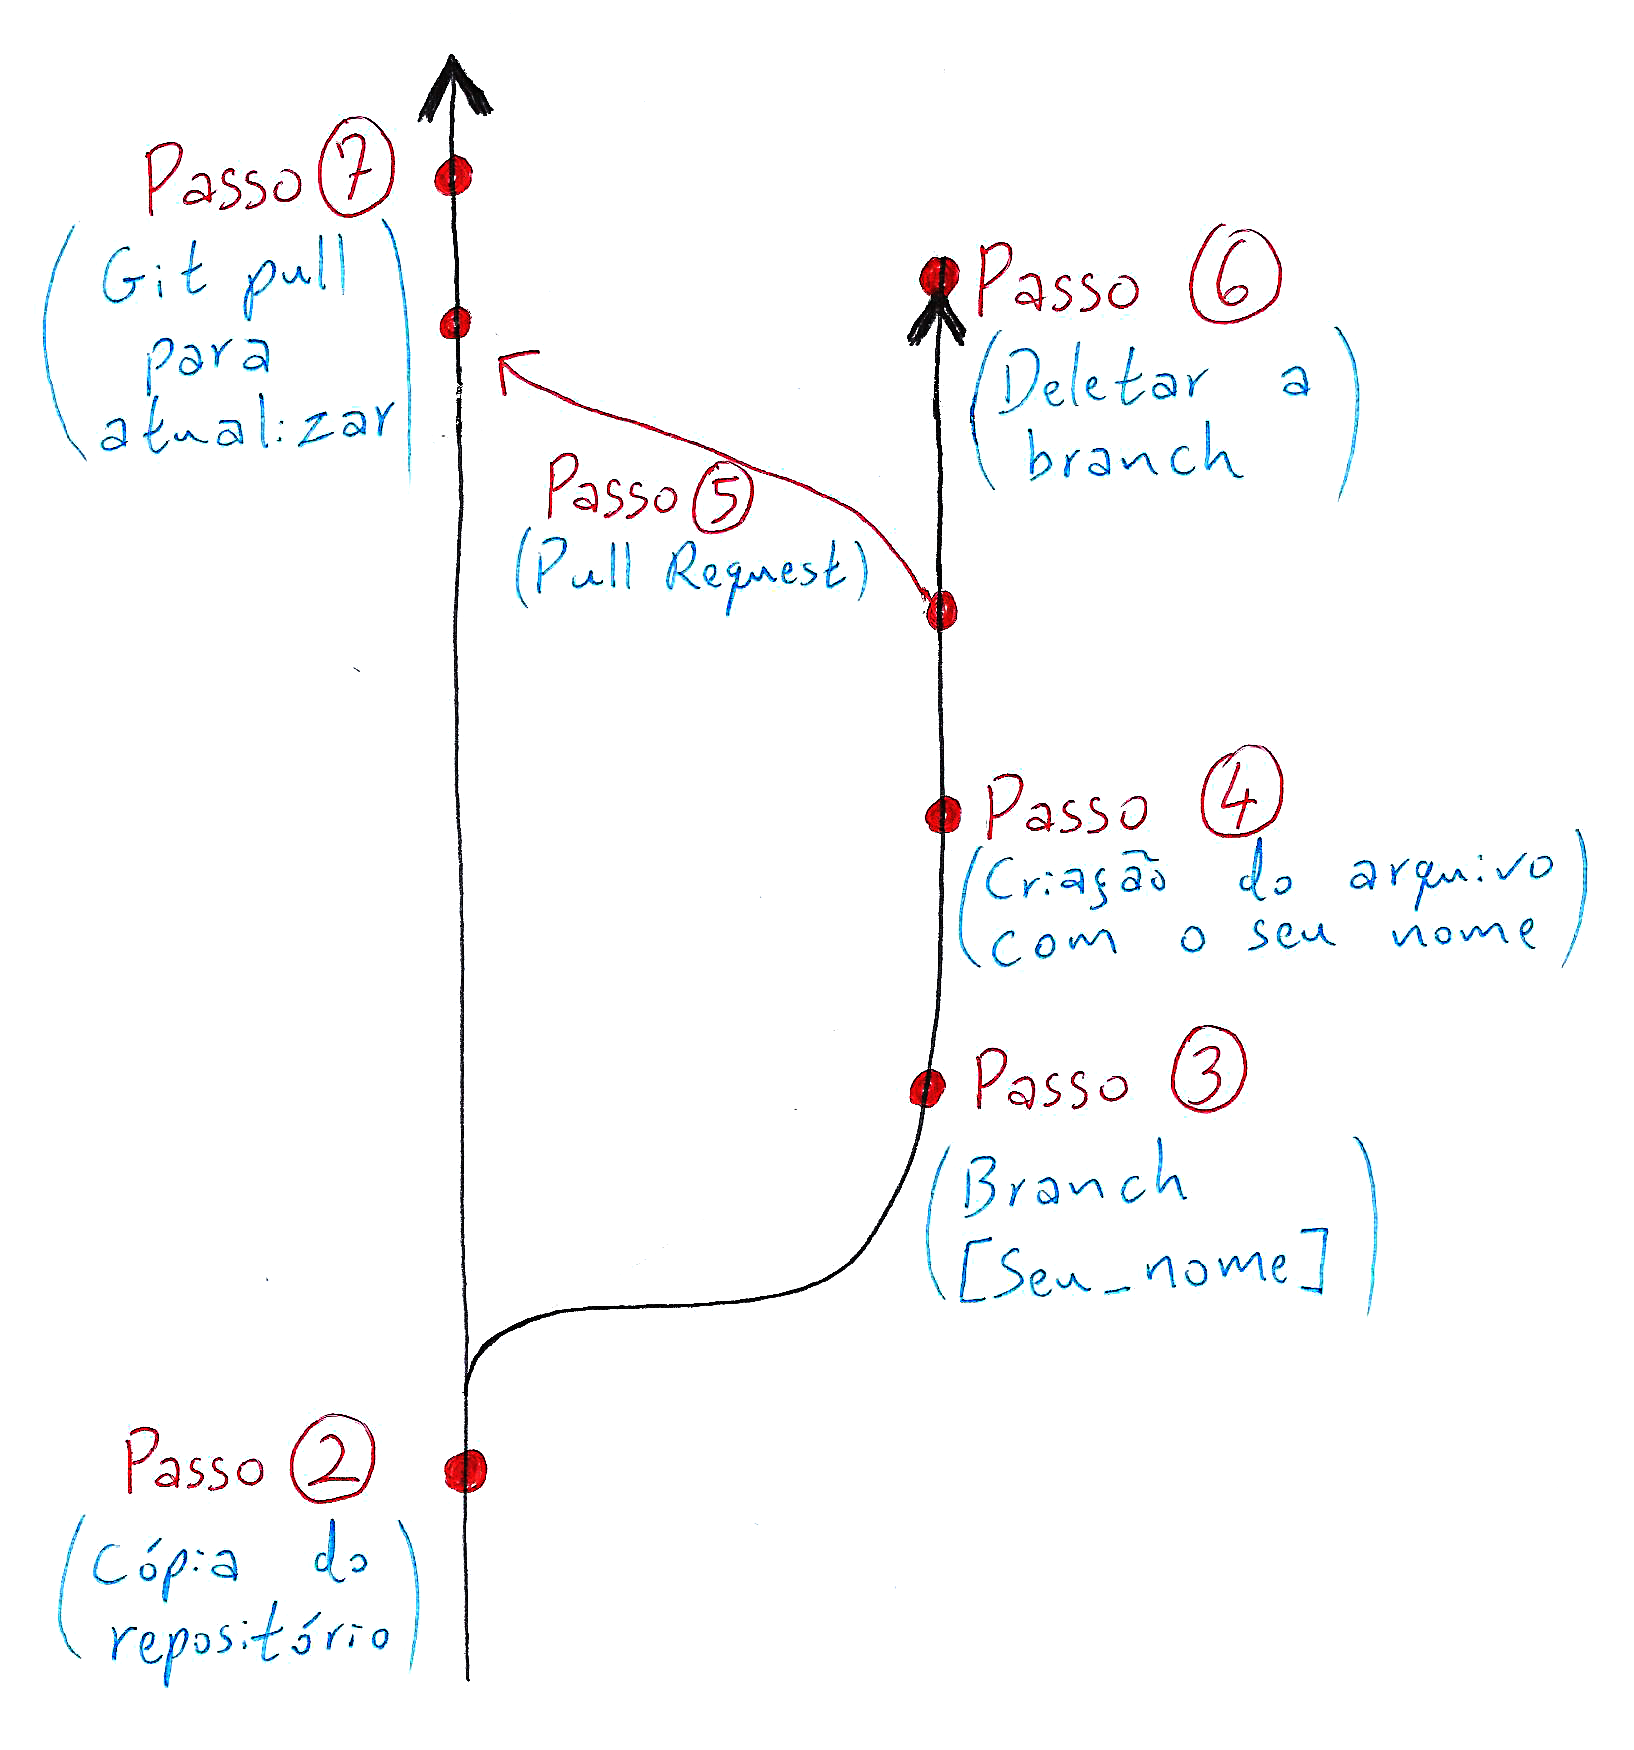 Passo 7
(Git pull
para
atualizar)
Passo 6
(Deletar a
branch)
Passo 5
(Pull Request)
Passo 4
(Criação do arquivo
com o seu nome)
Passo 3
(Branch
[Seu_nome])
Passo 2
(Cópia do
repositório)